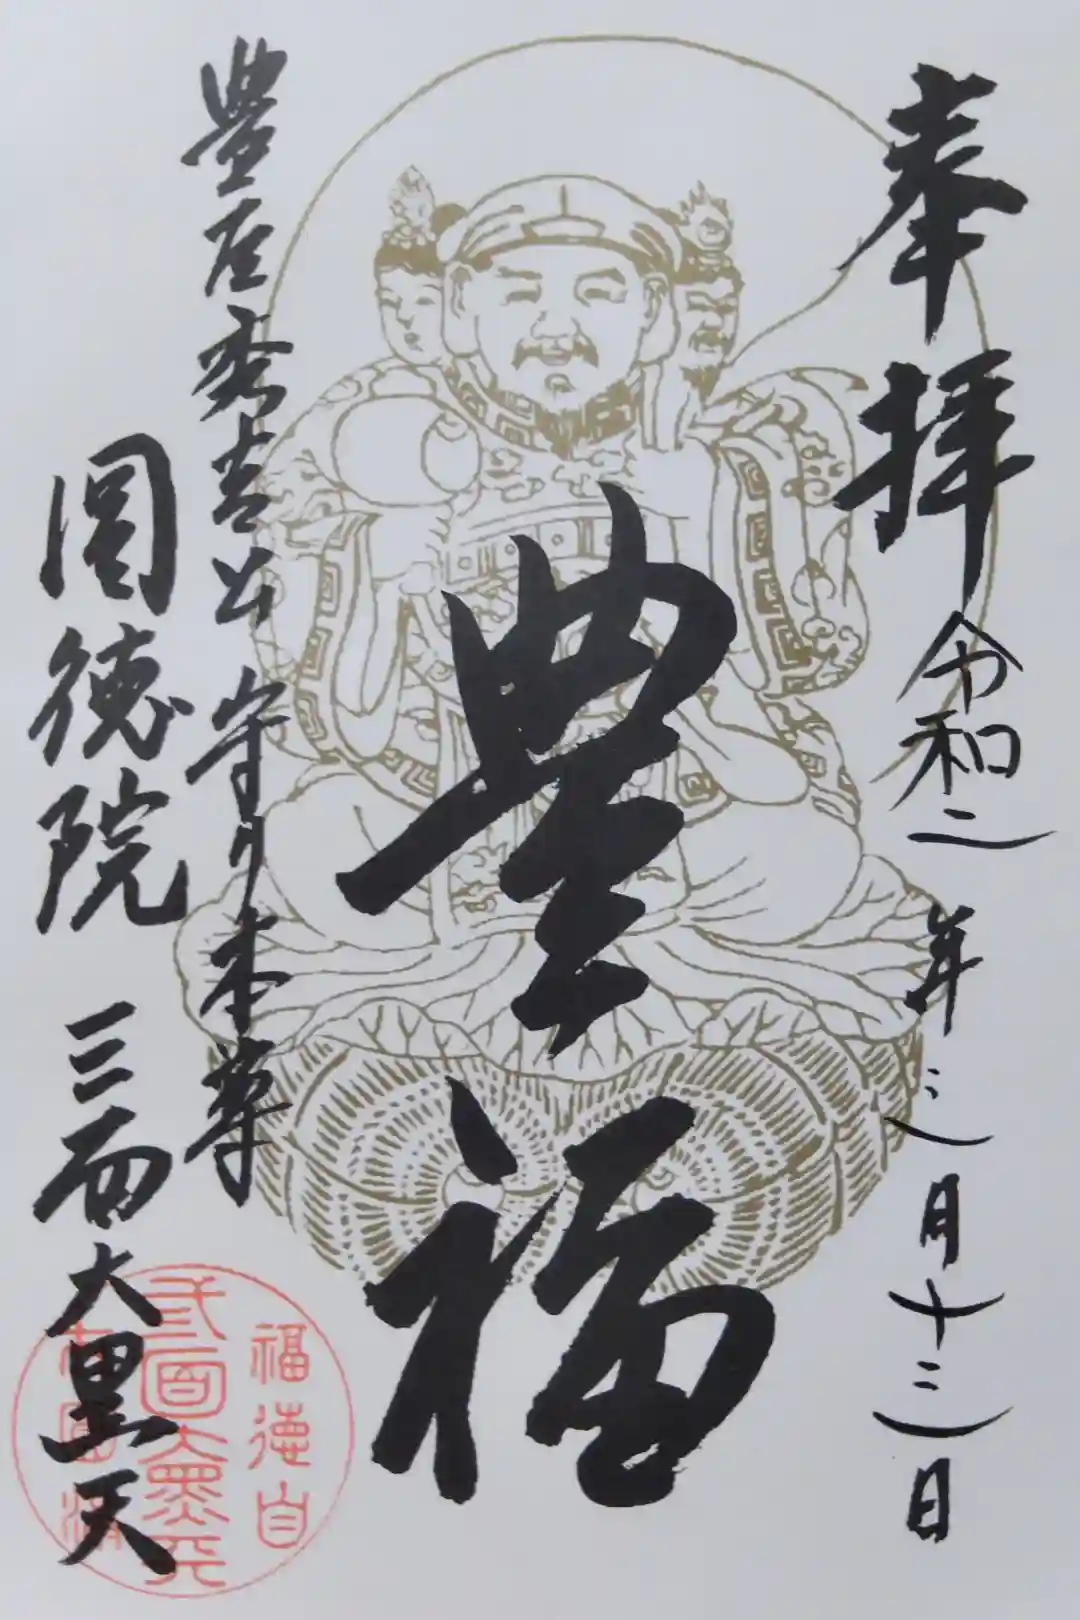 奉拝
令和二年三月十三日
豊福
豊臣秀吉公 守り本尊
圓徳院 三面大黒天
福徳自
三面大黒天